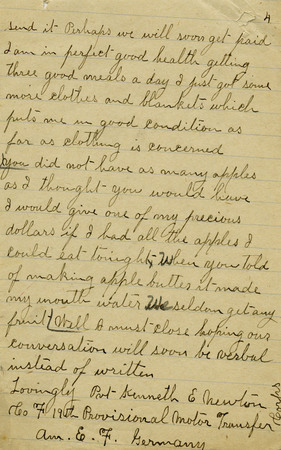 4
send it Perhaps we will soon get paid
I am in perfect good health getting
three good meals a day I just got some
more clothes and blankets which
puts me in good condition as
far as clothing is concerned
You did not have as many apples
as I thought you would have
I would give one of my precious
dollars if I had all the apples I
could eat tonight, When you told
of making apple butter it made
my mouth water We seldom get any
fruit Well I must close hoping our
conversation will soon be verbal
instead of written
Lovingly Pvt Kenneth E Newton
Co F Provisional Motor Transfer
Corps
Am. E. F. Germany